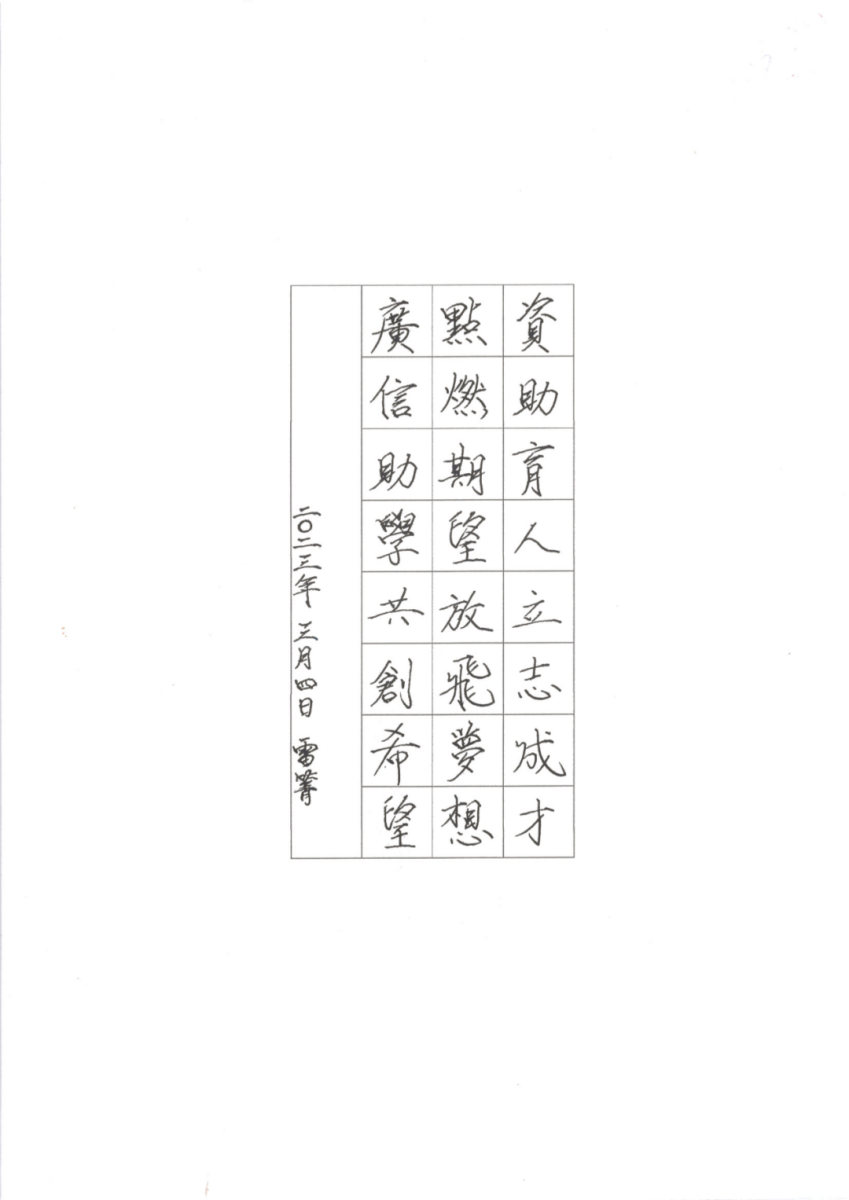 資助育人立志成才
點燃期望放飛夢想
廣信助學共創希望
二〇二三年 三月四日 雷箐